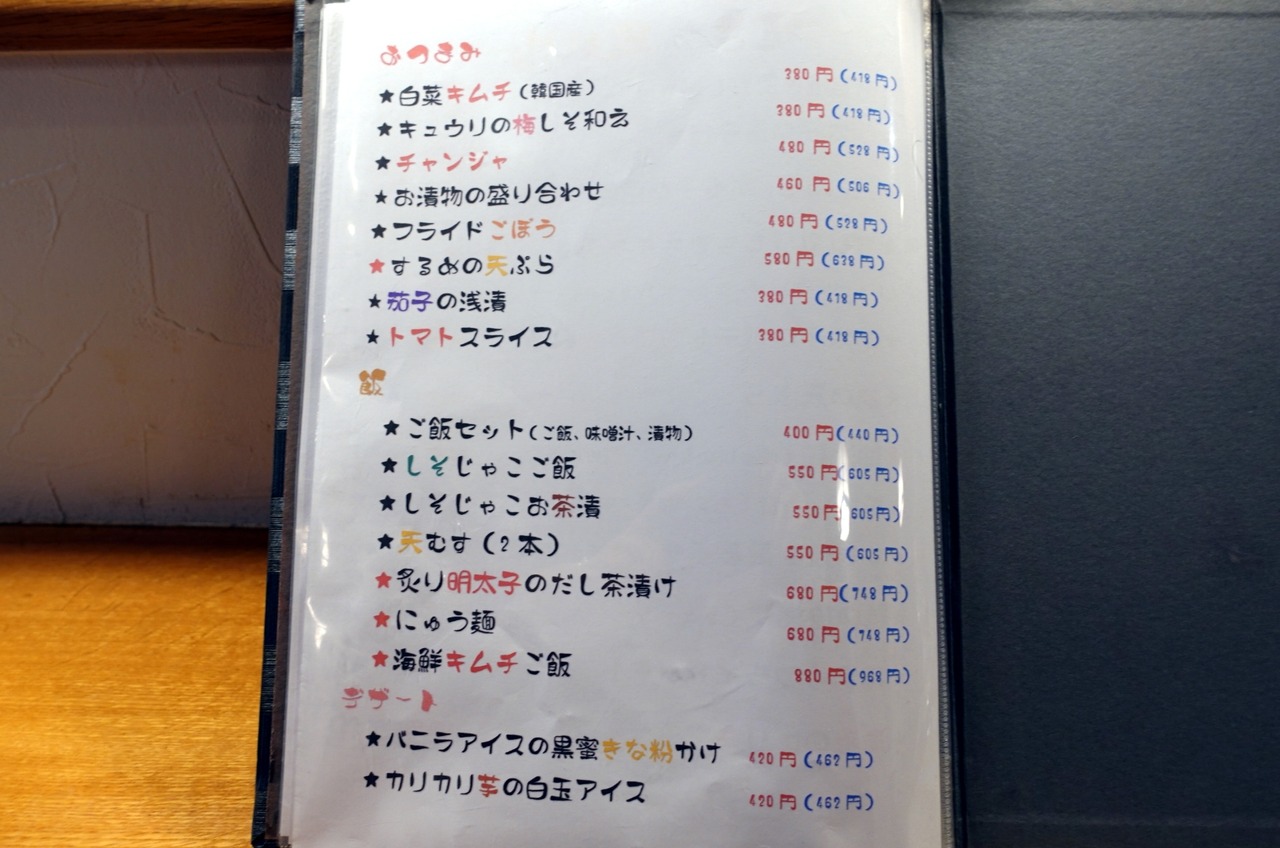 おつまみ
★白菜キムチ（韓国産） 380円（418円）
★キュウリの梅しそ和え 380円（418円）
★チャンジャ 480円（528円）
★お漬物の盛り合わせ 460円（506円）
★フライドごぼう 480円（528円）
★するめの天ぷら 580円（638円）
★茄子の浅漬 380円（418円）
★トマトスライス 380円（418円）
飯
★ご飯セット（ご飯、味噌汁、漬物） 400円（440円）
★しそじゃこご飯 550円（605円）
★しそじゃこお茶漬 550円（605円）
★天むす（2本） 550円（605円）
★炙り明太子のだし茶漬け 680円（748円）
★にゅう麺 680円（748円）
★海鮮キムチご飯 880円（968円）
デザート
★バニラアイスの黒蜜きな粉かけ 420円（462円）
★カリカリ芋の白玉アイス 420円（462円）